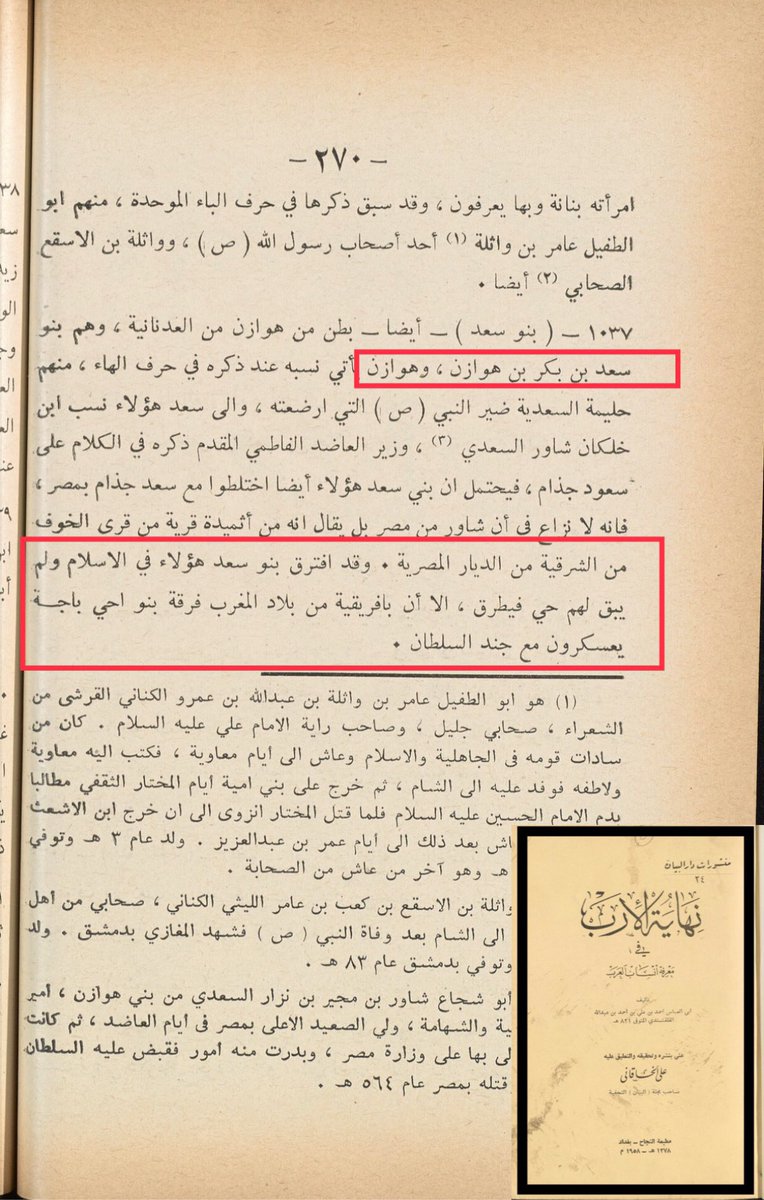 – ٢٧٠ –
امرأته بنانة وبها يعرفون ، وقد سبق ذكرها في حرف الباء الموحدة ، منهم ابو
الطفيل عامر بن واثلة (١) أحد أصحاب رسول الله ( ص ) ، وواثلة بن الاسقع
الصحابي (٢) أيضا .
١٠٣٧ – ( بنو سعد ) – أيضا – بطن من هوازن من العدنانية ، وهم بنو
سعد بن بكر بن هوازن ، وهوازن يأتي نسبه عند ذكره في حرف الهاء ، منهم
حليمة السعدية ضير النبي ( ص ) التي ارضعته ، والى سعد هؤلاء نسب ابن
خلكان شاور السعدي (٣) ، وزير العاضد الفاطمي المقدم ذكره في الكلام على
سعود جذام ، فيحتمل ان بني سعد هؤلاء أيضا اختلطوا مع سعد جذام بمصر ،
فانه لا نزاع في أن شاور من مصر بل يقال انه من أثميدة قرية من قرى الخوف
من الشرقية من الديار المصرية . وقد افترق بنو سعد هؤلاء في الاسلام ولم
يبق لهم حي فيطرق ، الا أن بافريقية من بلاد المغرب فرقة بنو احي باجة
يعسكرون مع جند السلطان .
(١) هو ابو الطفيل عامر بن واثلة بن عبدالله بن عمرو الكناني القرشى من
الشعراء ، صحابي جليل ، وصاحب راية الامام علي عليه السلام . كان من
سادات قومه فى الجاهلية والاسلام وعاش الى أيام معاوية ، فكتب اليه معاوية
ولاطفه فوفد عليه الى الشام ، ثم خرج على بني امية أيام المختار الثقفي مطالبا
بدم الامام الحسين عليه السلام فلما قتل المختار انزوى الى ان خرج ابن الاشعث
عاش بعد ذلك الى أيام عمر بن عبدالعزيز . ولد عام ٣ هـ وتوفي
هـ وهو آخر من عاش من الصحابة .
واثلة بن الاسقع بن كعب بن عامر الليثي الكناني ، صحابي من أهل
الى الشام بعد وفاة النبي ( ص ) فشهد المغازي بدمشق . ولد
وتوفي بدمشق عام ٨٣ هـ .
أبو شجاع شاور بن مجير بن نزار السعدي من بني هوازن ، أمير
ية والشهامة ، ولي الصعيد الاعلى بمصر فى أيام العاضد ، ثم كانت
لى بها على وزارة مصر ، وبدرت منه أمور فقبض عليه السلطان
قتله بمصر عام ٥٦٤ هـ .
منشورات دار البيان
٢٤
نهاية الأرب
في
معرفة أنساب العرب
تأليف
ابي العباس احمد بن علي بن احمد بن عبدالله
القلقشندي المتوفى ٨٢١ هـ
عني بنشره وتحقيقه والتعليق عليه
علي الخاقاني
صاحب مجلة ( البيان ) النجفية
مطبعة النجاح – بغداد
١٣٧٨ هـ – ١٩٥٨ م